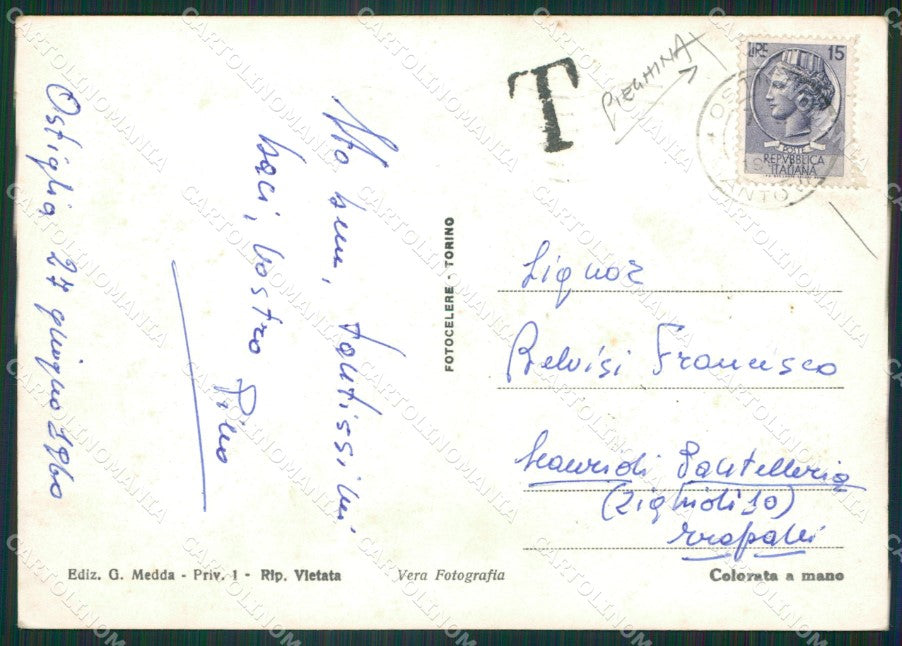 Ostiglia, 27 giugno 1960
Sto bene, tantissimi
baci, vostro Pino
T
PIEGHINA
LIRE 15
POSTE
REPVBBLICA
ITALIANA
FOTOCELERE - TORINO
Signor
Belvisi Francesco
Scauri di Pantelleria
Trapani
Ediz. G. Medda - Priv. 1 - Rip. Vietata
Vera Fotografia
Colorata a mano
CARTOLINOMANIA